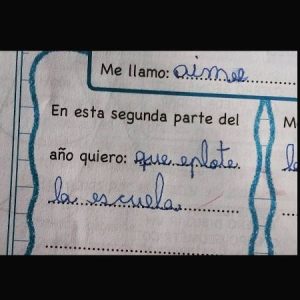 Me llamo: aimee
En esta segunda parte del
año quiero: que eplote
la escuela.
M
l